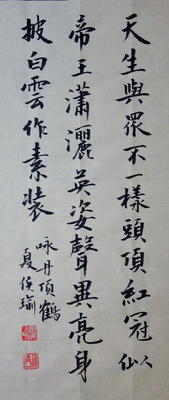 天生與眾不一樣頭頂紅冠似
帝王瀟灑英姿聲異亮身
披白雲作素裝
咏丹頂鶴
夏侯瑜